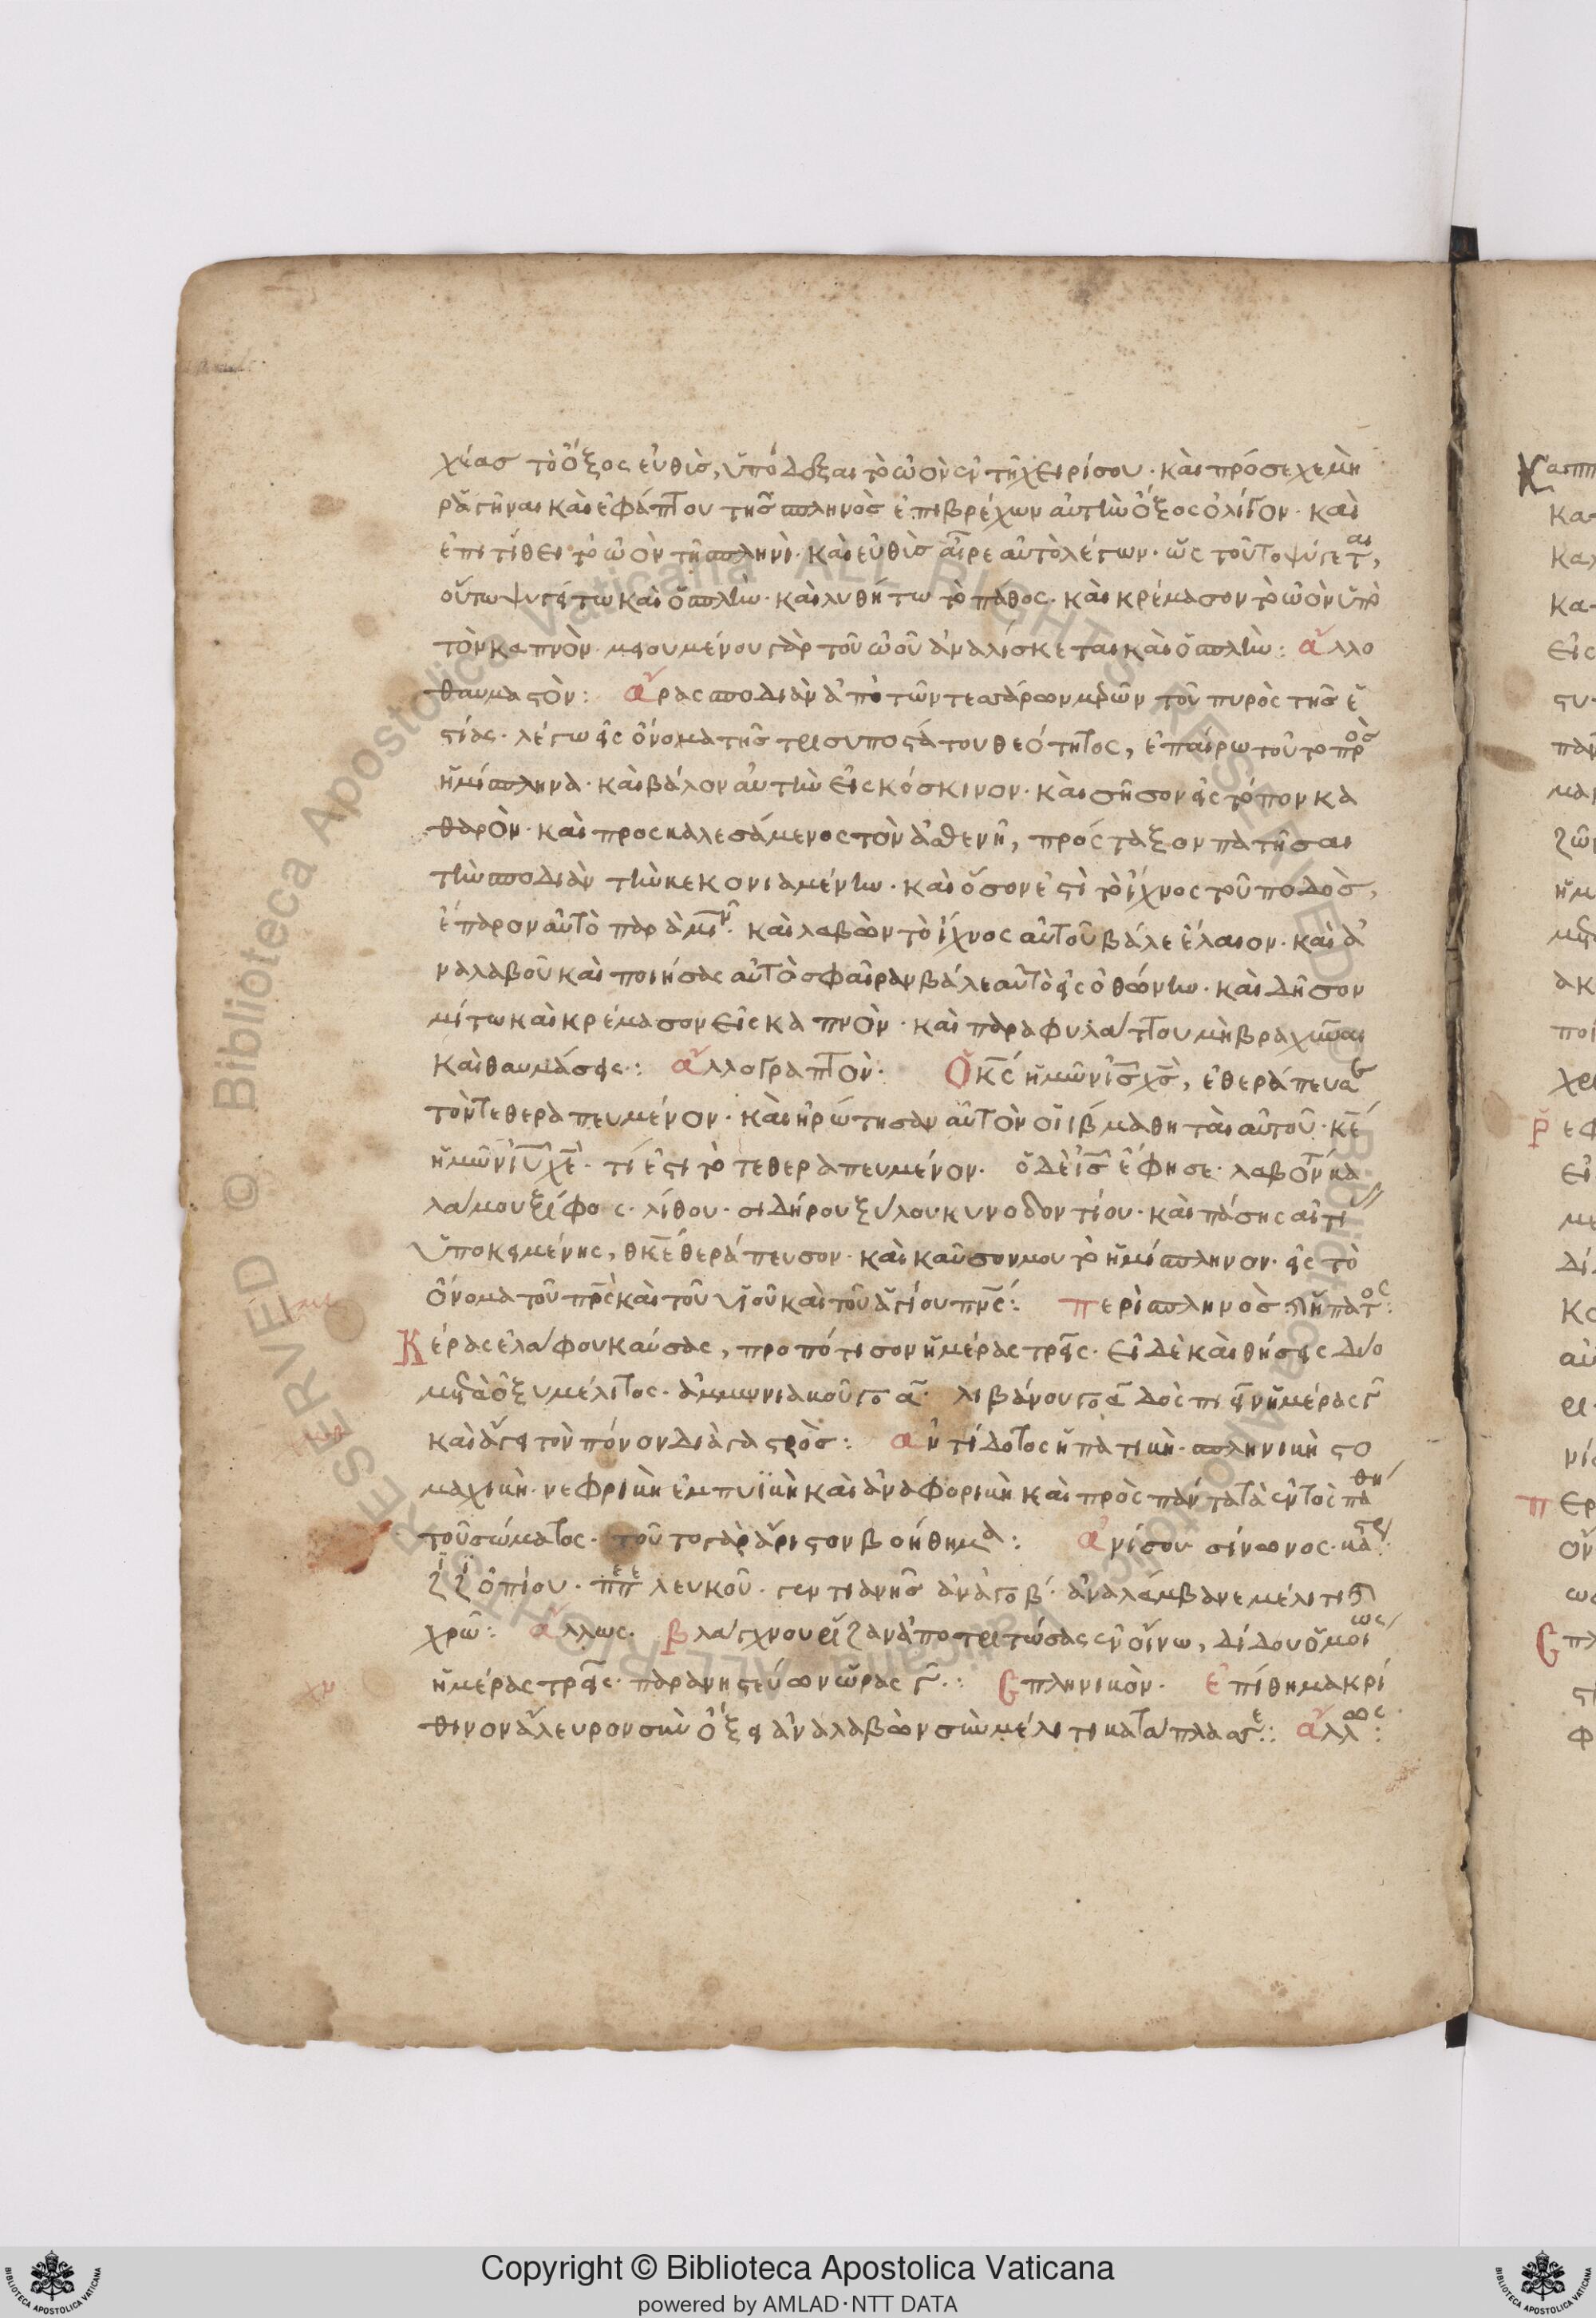 χέας τὸ ὄξος εὐθὺς, ὑπόδεξαι τὸ ὠὸν ἐν τῇ χειρί σου· καὶ πρόσεχε μὴ
ραγῆναι καὶ ἐφάπτου τῆς σπληνὸς ἐπιβρέχων αὐτὴν ὄξος ὀλίγον· καὶ
ἐπιτίθει τὸ ὠὸν τῇ σπληνί· καὶ εὐθὺς αἶρε αὐτὸ λέγων· ὡς τοῦτο ψύγεται,
οὕτω ψυγείτω καὶ ὁ σπλὴν· καὶ λυθήτω τὸ πάθος· καὶ κρέμασον τὸ ὠὸν ὑπὸ
τὸν καπνὸν· μειουμένου γὰρ τοῦ ὠοῦ ἀναλίσκεται καὶ ὁ σπλὴν: ἄλλο
θαυμαστὸν: ἄρας σποδιὰν ἀπὸ τῶν τεσσάρων μερῶν τοῦ πυρὸς τῆς ἑ
στίας· λέγω εἰς ὄνομα τῆς τρισυποστάτου θεότητος, ἐπαίρω τοῦτο πρὸς
ἡμίσπληνα· καὶ βάλον αὐτὴν εἰς κόσκινον· καὶ σῆσον εἰς τόπον κα
θαρὸν· καὶ προσκαλεσάμενος τὸν ἀσθενῆ, πρόσταξον πατῆσαι
τὴν σποδιὰν τὴν κεκονιαμένην· καὶ ὅσον ἐστὶ τὸ ἴχνος τοῦ ποδὸς,
ἔπαρον αὐτὸ
καὶ λαβὼν τὸ ἴχνος αὐτοῦ βάλε ἔλαιον· καὶ ἀ
ναλαβοῦ καὶ ποιήσας αὐτὸ σφαῖραν βάλε αὐτὸ εἰς ὀθώνην· καὶ δῆσον
μίτω καὶ κρέμασον εἰς καπνὸν· καὶ παραφυλάττου μὴ βραχῆναι
καὶ θαυμάσεις: ἄλλο γραπτὸν· Ὁ κς ἡμῶν ις χς, ἐθεράπευσε
τὸν τεθεραπευμένον· καὶ ἠρώτησαν αὐτὸν οἱ ιβ μαθηταὶ αὐτοῦ· κε
ἡμῶν ιυ χε· τί ἐστι τὸ τεθεραπευμένον· ὁ δὲ ις ἔφησε· λαβὼν κα
λάμου ξίφος· λίθου· σιδήρου ξύλου κυνοδοντίου· καὶ πάσης αἰτί
ὑποκειμένης, θκε θεράπευσον· καὶ καῦσον μου τὸ ἡμίσπληνον· εἰς τὸ
ὄνομα τοῦ πρς καὶ τοῦ υἱοῦ καὶ τοῦ ἁγίου πνς: περὶ σπληνὸς ἢ ἥπατος:
Κέρας ἐλάφου καύσας, προπότισον ἡμέρας τρεῖς· εἰ δὲ καὶ θήσεις δύο
μετὰ ὀξυμέλιτος· ἀμμωνιακοῦ γο α· λιβάνου γο α δὸς πιεῖν ἡμέρας γ
καὶ ἄγει τὸν πόνον διὰ γαστρὸς: ἀντίδοτος ἡπατικὴ· σπληνικὴ στο
μαχικὴ· νεφρικὴ ἐμπυϊκὴ καὶ ἀναφορικὴ καὶ πρὸς πάντα τὰ ἐντὸς πάθη
τοῦ σώματος· τοῦτο γὰρ ἄριστον βοήθημα: ἀνίσου σίνωνος· καστρ
ὀπίου· πεπε λευκοῦ· γεντιανῆς ἀνὰ γο β· ἀναλάμβανε μέλιτι
χρῶ: ἄλλως· βλάγχνου ῥίζαν ἀποτριτώσας ἐν οἴνω, δίδου ὁμοίως
ἡμέρας τρεῖς· παρανηστεύων ὥρας γ: Σπληνικὸν· ἐπίθημα κρί
θινον ἄλευρον σὺν ὄξει ἀναλαβὼν σὺν μέλιτι κατάπλασσε: ἄλλως:
Copyright © Biblioteca Apostolica Vaticana
powered by AMLAD·NTT DATA